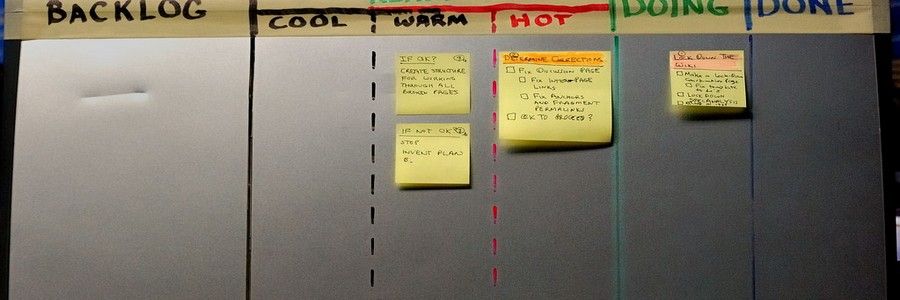 BACKLOG
COOL
WARM
HOT
DOING
DONE
IF OK?
CREATE STRUCTURE
FOR WORKING
THROUGH ALL
BROKEN PAGES
IF NOT OK?
STOP
INVENT PLAN
B.
DETERMINE CORRECTIONS
FIX DISCUSSION PAGE
FIX
LINKS
FIX ANCHORS
AND FRAGMENT
PERMALINKS
OK TO PROCEED?
LOCK DOWN THE
WIKI
MAKE A
PAGE
FIX TEMPLATE
LOCK DOWN